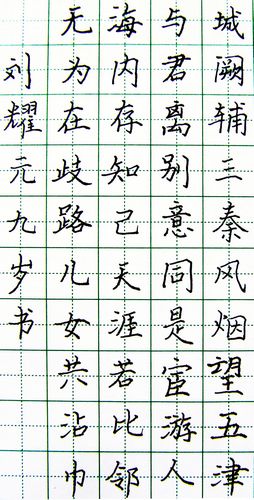 城阙辅三秦风烟望五津
与君离别意同是宦游人
海内存知己天涯若比邻
无为在歧路儿女共沾巾
刘耀元九岁书